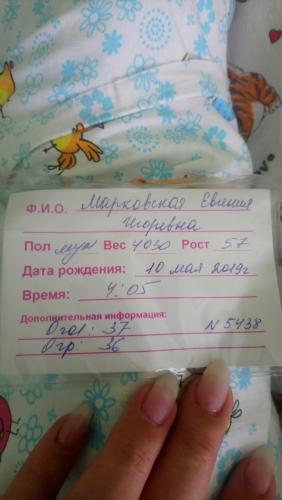 Ф.И.О. Марковская Евгения
Игоревна
Пол муж Вес 4050 Рост 57
Дата рождения: 10 мая 2019г
Время: 4:05
Дополнительная информация:
Огол: 37 N 5438
Огр: 36